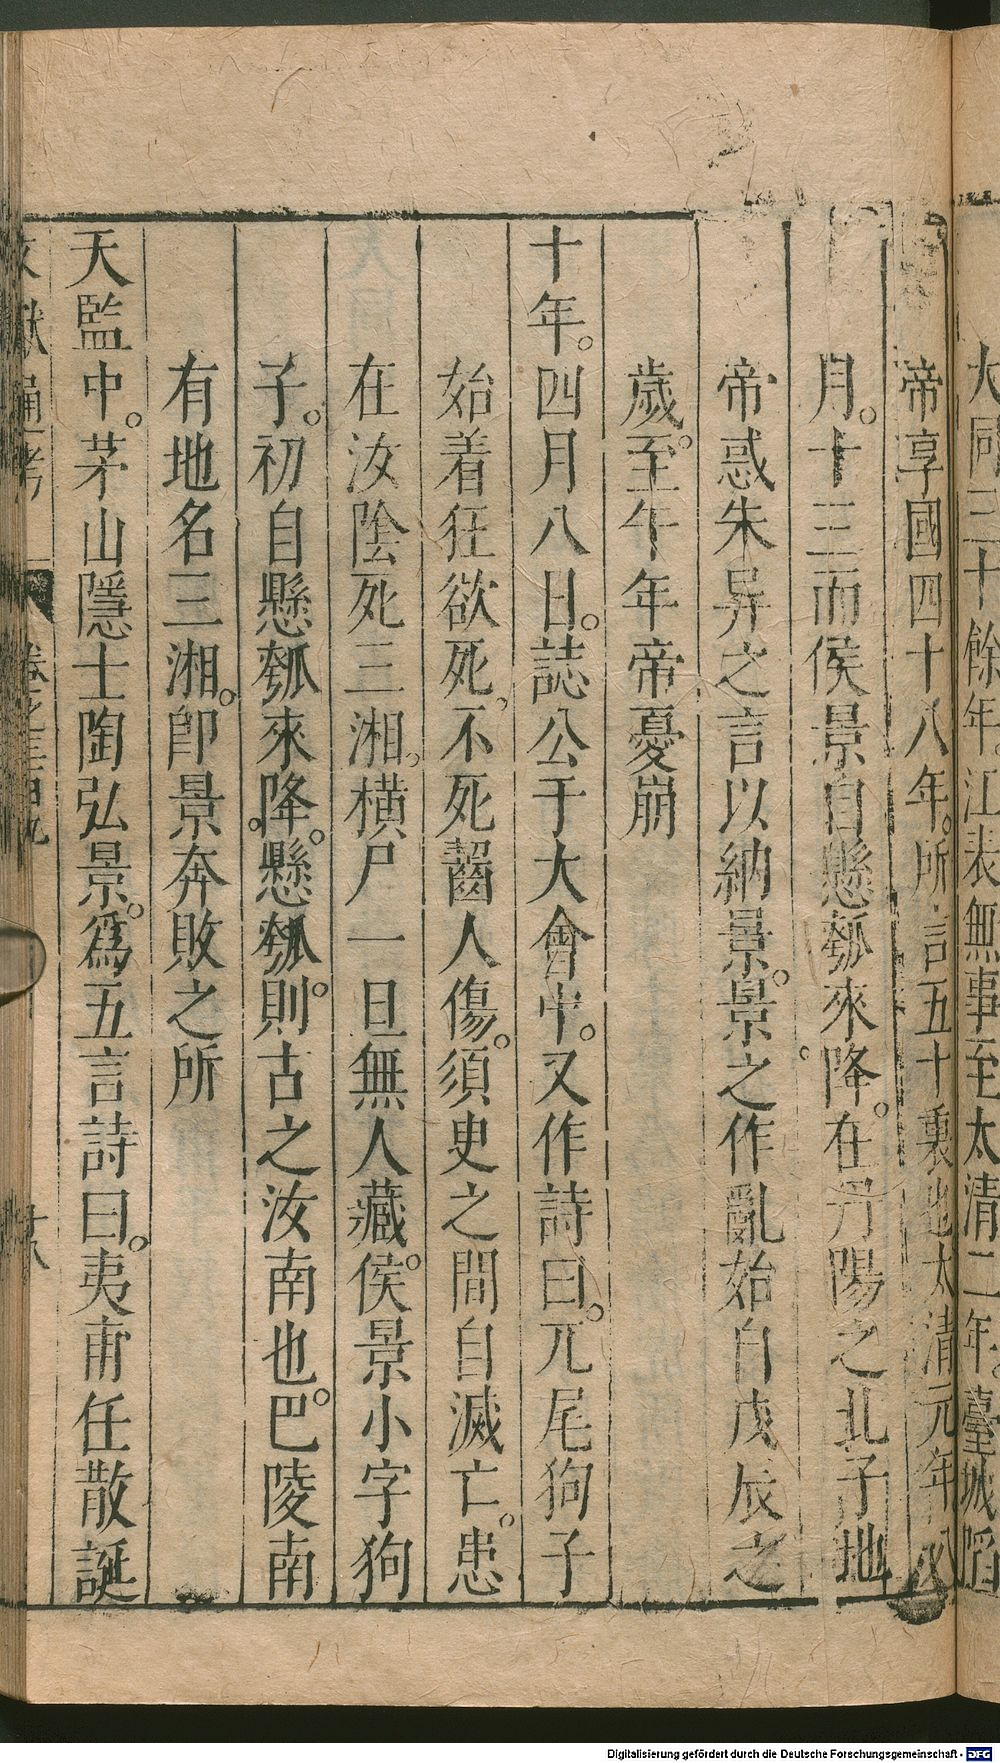 大同三十餘年。江表無事至太清二年。臺城陷
帝享國四十八年。所言五十裏也太清元年八
月。十三而侯景自懸瓠來降。在丹陽之北子地
帝惑朱异之言以納景。景之作亂始自戊辰之
歲。至午年帝憂崩
十年。四月八日。誌公于大會中。又作詩曰。兀尾狗子
始着狂欲死。不死齧人傷。須臾之間自滅亡。患
在汝陰死三湘。橫尸一旦無人藏。侯景小字狗
子。初自懸瓠來降。懸瓠。則古之汝南也。巴陵南
有地名三湘。卽景奔敗之所
天監中。茅山隱士陶弘景。爲五言詩曰。夷甫任散誕
文獻通考
十八
Digitalisierung gefördert durch die Deutsche Forschungsgemeinschaft - DFG